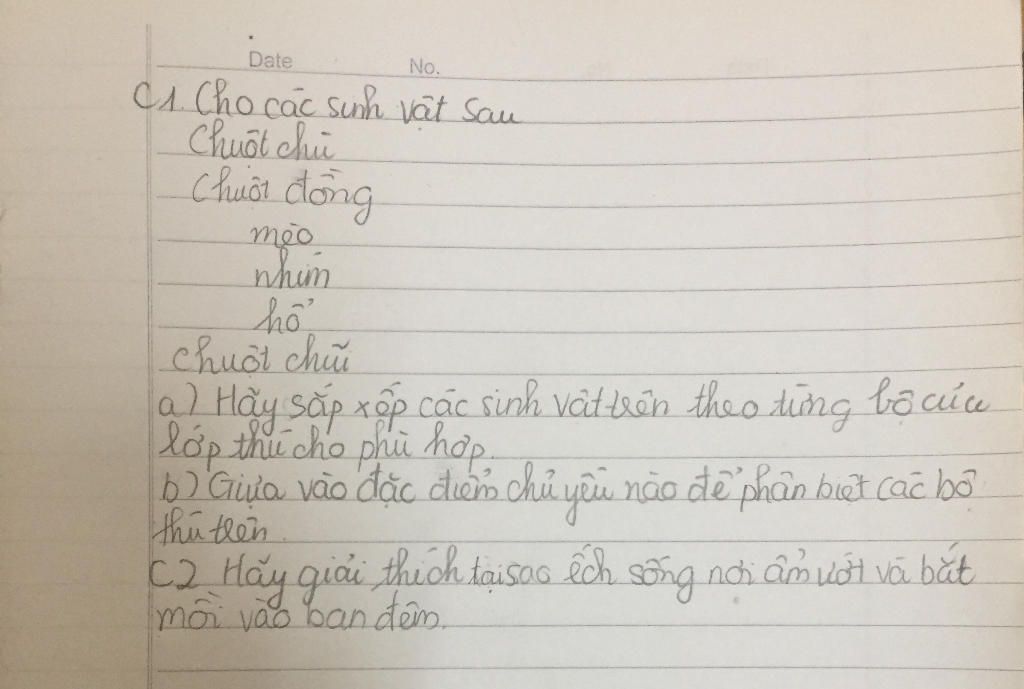 Date No.
C1. Cho các sinh vật sau
Chuột chù
Chuột đồng
mèo
nhím
hổ
chuột chũi
a) Hãy sắp xếp các sinh vật trên theo từng bộ của
lớp thú cho phù hợp.
b) Giựa vào đặc điểm chủ yếu nào để phân biệt các bộ
thú trên.
C2 Hãy giải thích tại sao ếch sống nơi ẩm ướt và bắt
mồi vào ban đêm.